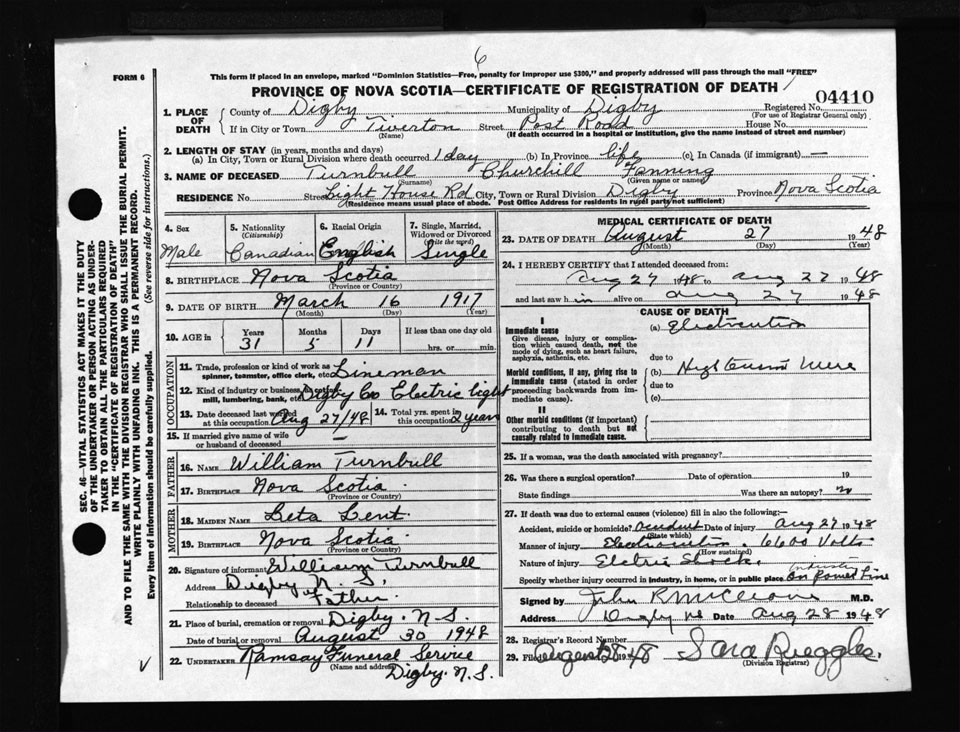 6
FORM 6
This form if placed in an envelope, marked "Dominion Statistics—Free, penalty for improper use $300," and properly addressed will pass through the mail "FREE"
PROVINCE OF NOVA SCOTIA—CERTIFICATE OF REGISTRATION OF DEATH
04410
1. PLACE OF DEATH
County of Digby Municipality of Digby Registered No.
(For use of Registrar General only)
If in City or Town Tiverton Street Post Road House No.
(Name) (If death occurred in a hospital or institution, give the name instead of street and number)
2. LENGTH OF STAY (in years, months and days)
(a) In City, Town or Rural Division where death occurred 1 day (b) In Province life (c) In Canada (if immigrant) —
3. NAME OF DECEASED Turnbull Churchill Fanning
(Surname) (Given name or names)
RESIDENCE No. Street Light House Rd City, Town or Rural Division Digby Province Nova Scotia
(Residence means usual place of abode. Post Office Address for residents in rural parts not sufficient)
SEC. 46—VITAL STATISTICS ACT MAKES IT THE DUTY
OF THE UNDERTAKER OR PERSON ACTING AS UNDER-
TAKER TO OBTAIN ALL THE PARTICULARS REQUIRED
IN THE "CERTIFICATE OF REGISTRATION OF DEATH"
AND TO FILE THE SAME WITH THE DIVISION REGISTRAR WHO SHALL ISSUE THE BURIAL PERMIT.
WRITE PLAINLY WITH UNFADING INK. THIS IS A PERMANENT RECORD.
Every item of information should be carefully supplied. (See reverse side for instructions.)
4. Sex 5. Nationality (Citizenship) 6. Racial Origin 7. Single, Married, Widowed or Divorced (write the word)
Male Canadian English Single
8. BIRTHPLACE Nova Scotia
(Province or Country)
9. DATE OF BIRTH March 16 1917
(Month) (Day) (Year)
10. AGE in Years Months Days If less than one day old
31 5 11 hrs. or min.
OCCUPATION
11. Trade, profession or kind of work as spinner, teamster, office clerk, etc. Lineman
12. Kind of industry or business, as cotton mill, lumbering, bank, etc. Digby Co Electric light
13. Date deceased last worked at this occupation Aug 27/48 14. Total yrs. spent in this occupation 2 years
15. If married give name of wife or husband of deceased —
FATHER
16. NAME William Turnbull
17. BIRTHPLACE Nova Scotia
(Province or Country)
MOTHER
18. MAIDEN NAME Leta Lent
19. BIRTHPLACE Nova Scotia
(Province or Country)
20. Signature of informant William Turnbull
Address Digby N. S.
Relationship to deceased Father
21. Place of burial, cremation or removal Digby. N.S.
Date of burial or removal August 30 1948
22. UNDERTAKER Ramsay Funeral Service
(Name and address) Digby. N.S.
MEDICAL CERTIFICATE OF DEATH
23. DATE OF DEATH August 27 1948
(Month) (Day) (Year)
24. I HEREBY CERTIFY that I attended deceased from:
Aug 27 1948 to Aug 27 1948
and last saw h im alive on Aug 27 1948
CAUSE OF DEATH
I
Immediate cause (a) Electrocution
Give disease, injury or complica-
tion which caused death, not the
mode of dying, such as heart failure,
asphyxia, asthenia, etc.
due to
Morbid conditions, if any, giving rise to (b) High tension Wire
immediate cause (stated in order
proceeding backwards from imme-
diate cause).
due to
(c)
II
Other morbid conditions (if important)
contributing to death but not
causally related to immediate cause.
25. If a woman, was the death associated with pregnancy?
26. Was there a surgical operation? Date of operation 19
State findings Was there an autopsy? no
27. If death was due to external causes (violence) fill in also the following:—
Accident, suicide or homicide? Accident Date of injury Aug 27 1948
(State which)
Manner of injury Electrocution. 6600 Volts
(How sustained)
Nature of injury Electric Shock.
Specify whether injury occurred in industry, in home, or in public place Industry On Power Line
Signed by John R M.D.
Address Digby NS Date Aug 28 1948
28. Registrar's Record Number
29. Filed August 28 1948 Sara Ruggles.
(Division Registrar)